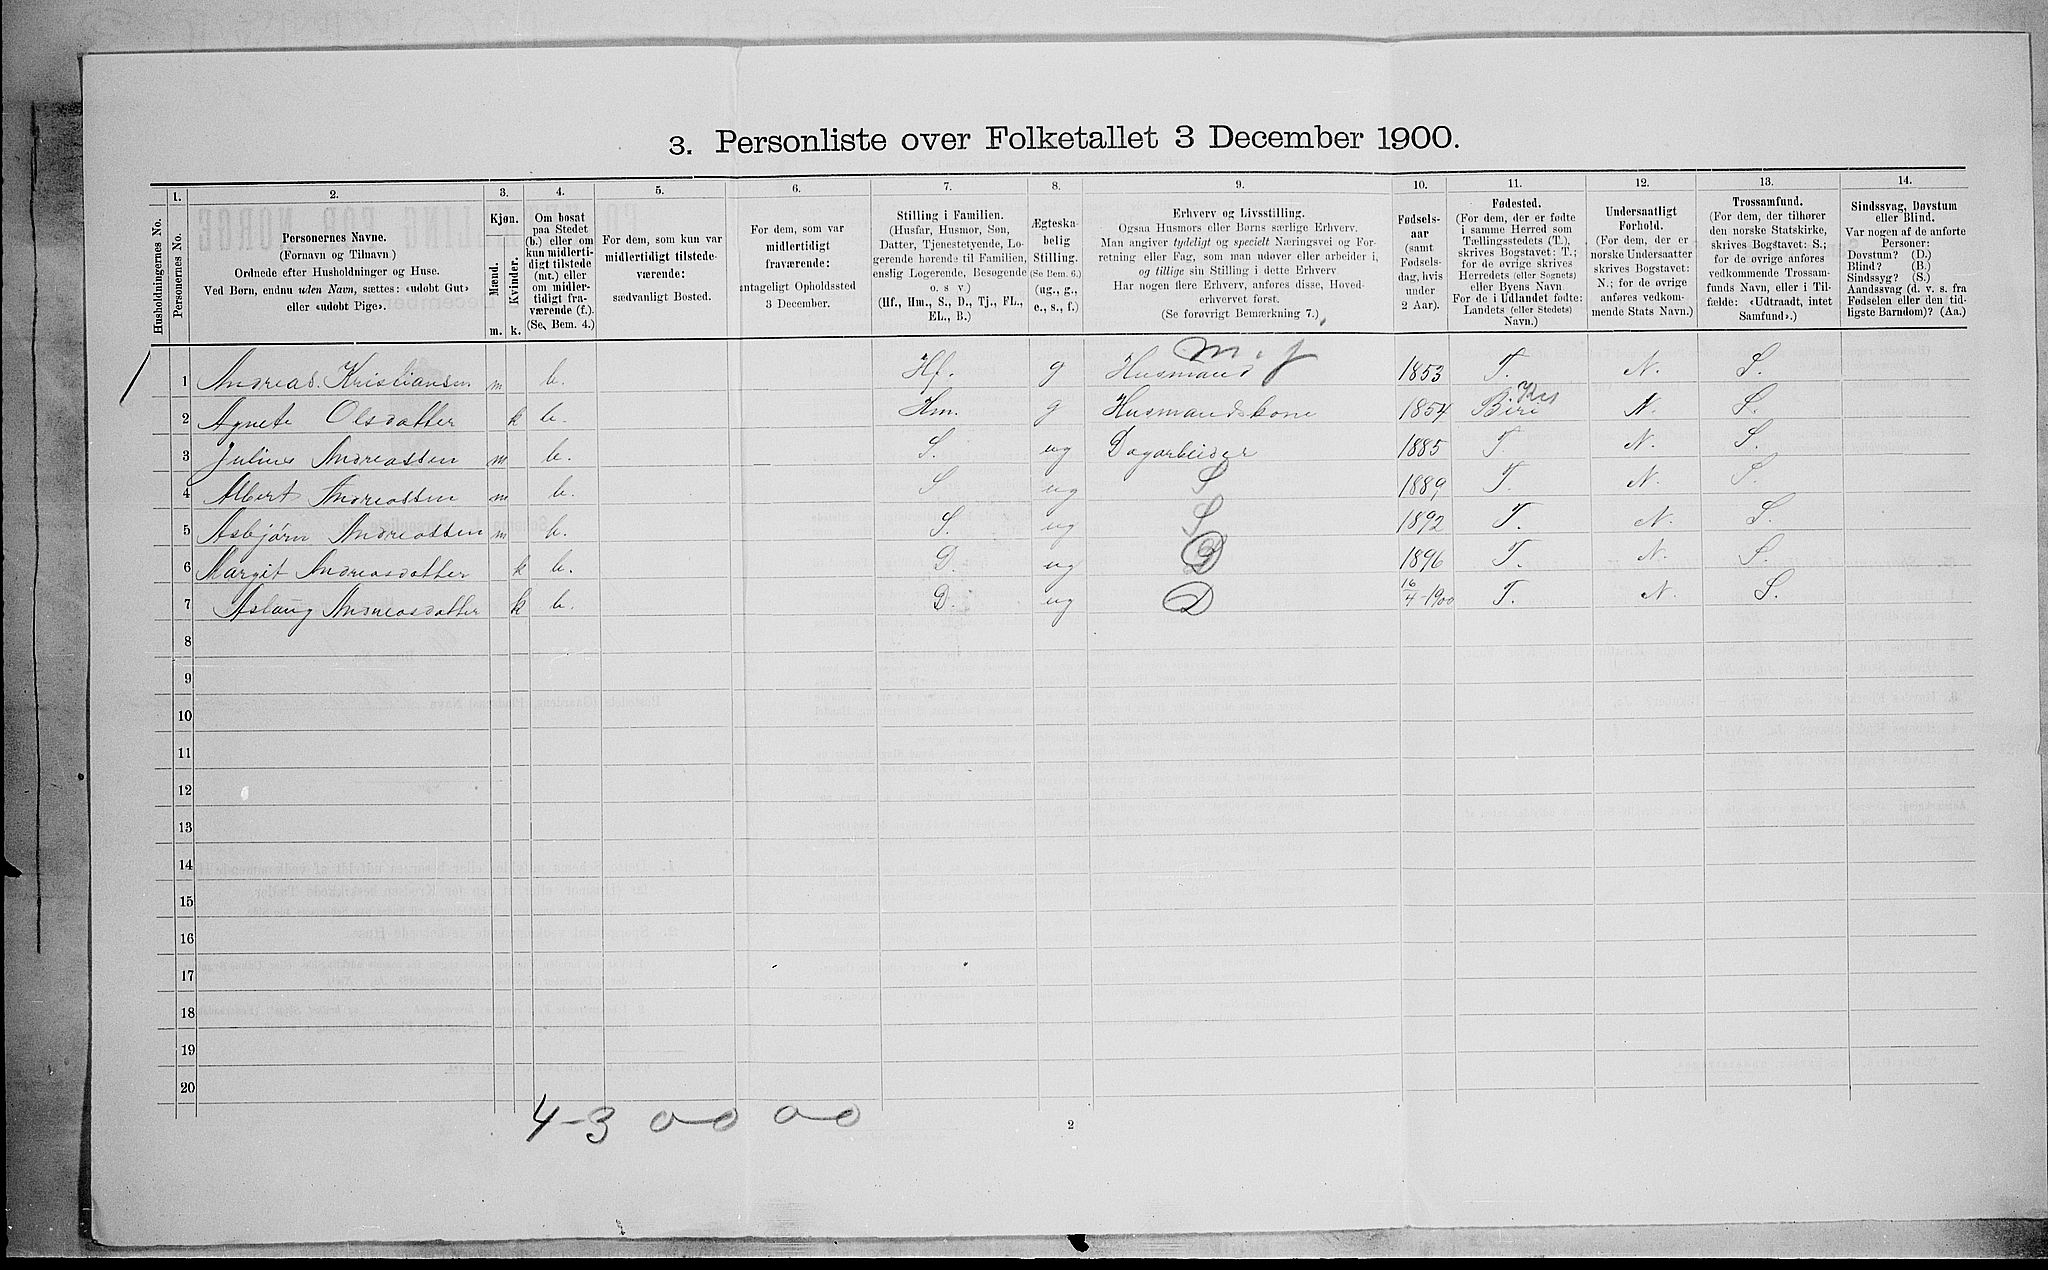 3. Personliste over Folketallet 3 December 1900.
1. 2. 3. 4. 5. 6. 7. 8. 9. 10. 11. 12. 13. 14.
Husholdningernes No.
Personernes No.
Personernes Navne.
(Fornavn og Tilnavn)
Ordnede efter Husholdninger og Huse.
Ved Børn, endnu uden Navn, sættes: «udøbt Gut»
eller «udøbt Pige».
Kjøn.
Mænd.
Kvinder.
m. k.
Om bosat
paa Stedet
(b.) eller om
kun midlerti-
digt tilstede
(mt.) eller
om midler-
tidigt fra-
værende (f.).
(Se, Bem. 4.)
For dem, som kun var
midlertidigt tilstede-
værende:
sædvanligt Bosted.
For dem, som var
midlertidigt
fraværende:
antageligt Opholdssted
3 December.
Stilling i Familien.
(Husfar, Husmor, Søn,
Datter, Tjenestetyende, Lo-
gerende hørende til Familien,
enslig Logerende, Besøgende
o. s v)
(Hf., Hm., S., D., Tj., FL.,
EL., B.)
Ægteska-
belig
Stilling.
(Se Bem. 6.)
(ug., g.,
e., s., f.)
Erhverv og Livsstilling.
Ogsaa Husmors eller Børns særlige Erhverv.
Man angiver tydeligt og specielt Næringsvei og For-
retning eller Fag, som man udøver eller arbeider i,
og tillige sin Stilling i dette Erhverv
Har nogen flere Erhverv, anføres disse, Hoved-
erhvervet først.
(Se forøvrigt Bemærkning 7.)
Fødsels-
aar
(samt
Fødsels-
dag, hvis
under
2 Aar).
Fødested.
(For dem, der er fødte
i samme Herred som
Tællingsstedets (T.),
skrives Bogstavet: T.;
for de øvrige skrives
Herredets (eller Sognets)
eller Byens Navn
For de i Udlandet fødte:
Landets (eller Stedets)
Navn.)
Undersaatligt
Forhold.
(For dem, der er
norske Undersaatter
skrives Bogstavet:
N.; for de øvrige
anføres vedkom-
mende Stats Navn.)
Trossamfund.
(For dem, der tilhører
den norske Statskirke,
skrives Bogstavet: S.;
for de øvrige anføres
vedkommende Trossam-
funds Navn, eller i Til-
fælde: «Udtraadt, intet
Samfund».)
Sindssvag, Døvstum
eller Blind.
Var nogen af de anførte
Personer:
Døvstum? (D.)
Blind? (B.)
Sindssyg? (S.)
Aandssvag (d. v. s. fra
Fødselen eller den tid-
ligste Barndom)? (Aa.)
1 Andreas. Kristiansen m b. Hf. g Husmand m. j 1853 T. N. S.
2 Agnete Olsdatter k b. Hm. g Husmandskone 1854 Biri Kr N. S.
3 Julius Andreassen m b. S. ug Dagarbeider 1885 T. N. S.
4 Albert Andreassen m b. S ug S 1889 T. N. S.
5 Asbjørn Andreassen m b. S. ug S 1892 T. N. S.
6 Margit Andreasdatter k b. D. ug D 1896 T. N. S.
7 Aslaug Andreasdatter k b. D. ug D 16/4-1900 T. N. S.
8
9
10
11
12
13
14
15
16
17
18
19
20
4-3 0-0 0-0
2